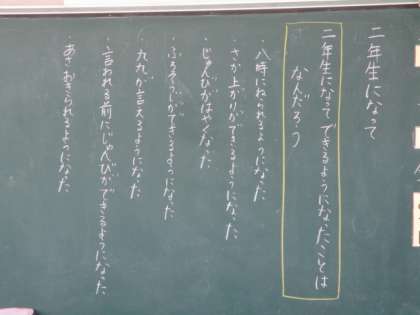 二年生になって
二年生になってできるようになったことは
なんだろう
・八時にねられるようになった
・さか上がりができるようになった
・じゅんびがはやくなった
・ふろそうじができるようになった
・九九が言えるようになった
・言われる前にじゅんびができるようになった
・あさおきられるようになった